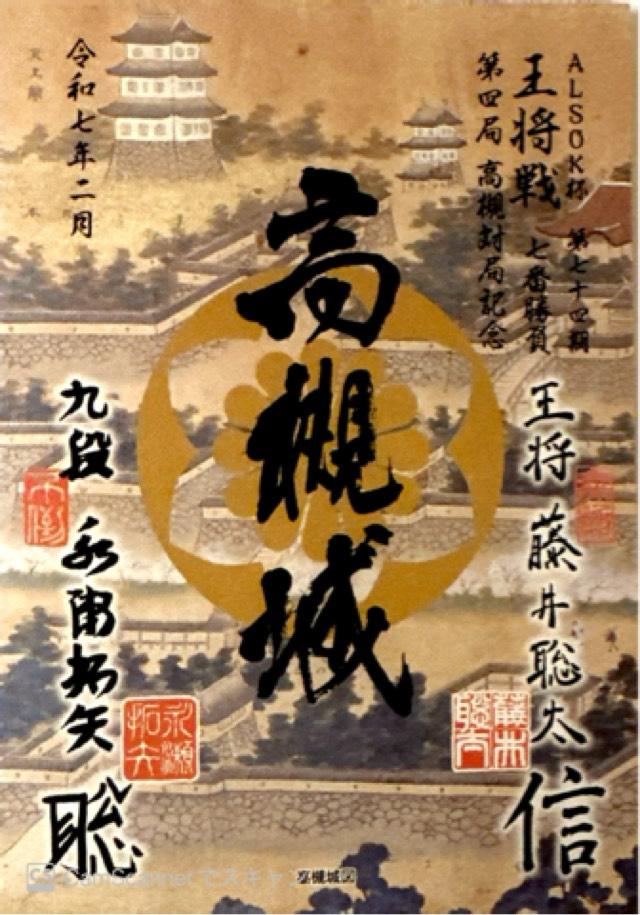 ALSOK杯 第七十四期
王将戦 七番勝負
第四局 高槻対局記念
令和七年二月
高槻城
王将 藤井聡太
信
九段 永瀬拓矢
聡
藤井聡太
永瀬拓矢
高槻城図
CS CamScannerでスキャン